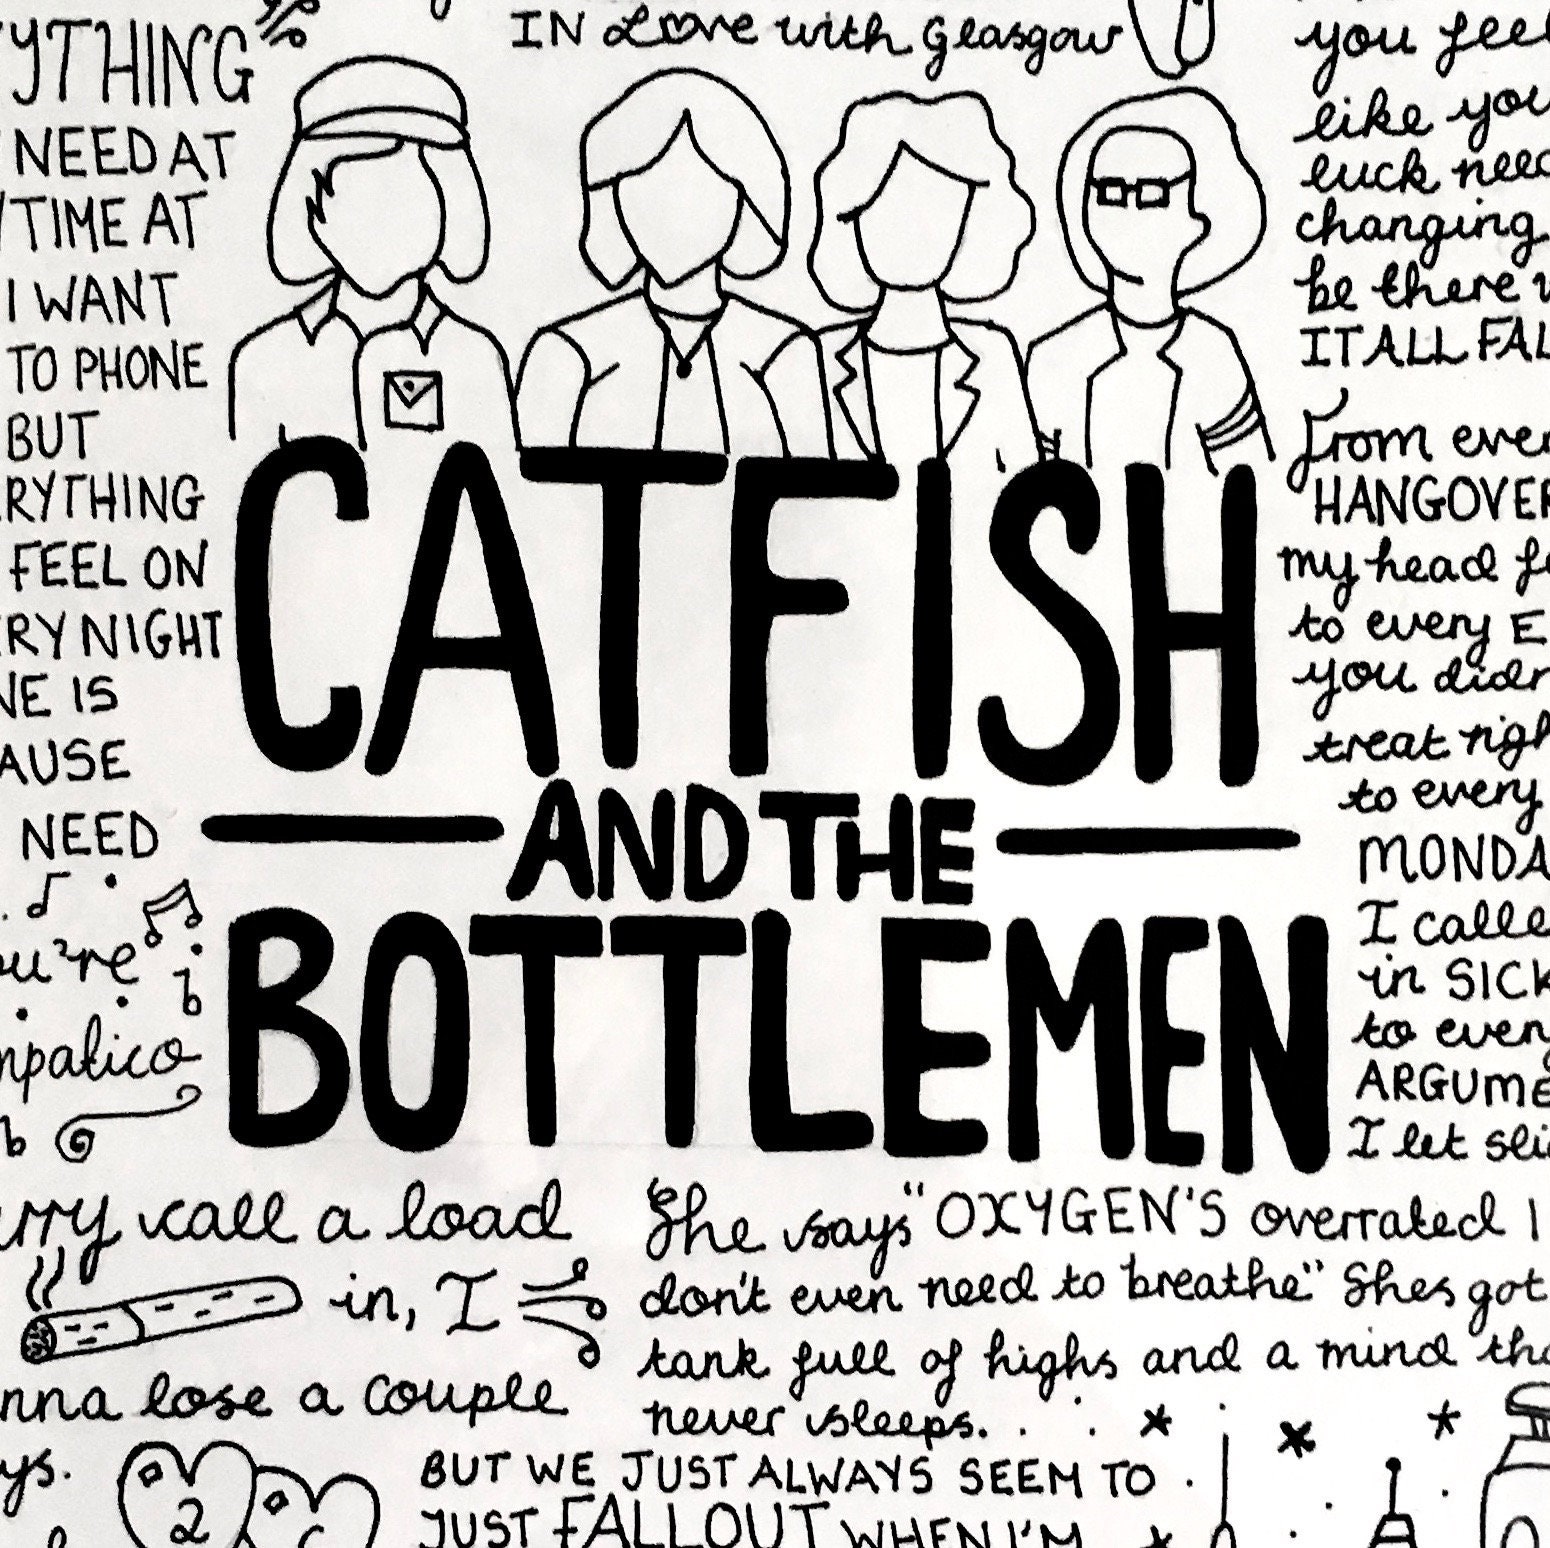 IN Love with Glasgow
YTHING
NEED AT
TIME AT
I WANT
TO PHONE
BUT
RYTHING
FEEL ON
RY NIGHT
NE IS
AUSE
NEED
ou're
mpatico
you feel
like you
luck need
changing
be there
IT ALL FAL
From ever
HANGOVER
my head
to every E
you didn
treat righ
to every
MONDA
I calle
in SICK
to every
ARGUME
I let sli
CATFISH
AND THE
BOTTLEMEN
rry call a load
in, I
nna lose a couple
ys.
She says "OXYGEN'S overrated I
don't even need to breathe" Shes got
tank full of highs and a mind tha
never sleeps. . .
BUT WE JUST ALWAYS SEEM TO
JUST FALLOUT WHEN I'M
2